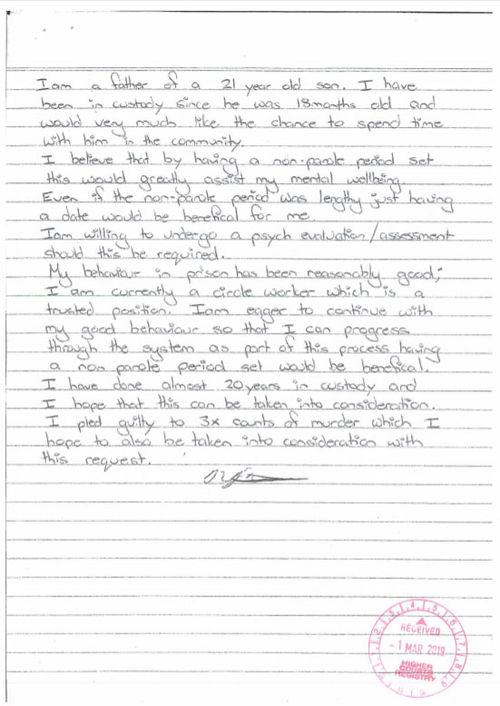 I am a father of a 21 year old son. I have
been in custody since he was 18months old and
would very much like the chance to spend time
with him in the community.
I believe that by having a non-parole period set
this would greatly assist my mental wellbeing
Even if the non-parole period was lengthy just having
a date would be benefical for me.
I am willing to undergo a psych evaluation/assessment
should this be required.
My behaviour in prison has been reasonably good;
I am currently a circle worker which is a
trusted position. I am eager to continue with
my good behaviour so that I can progress
through the system as part of this process having
a non parole period set would be benefical.
I have done almost 20 years in custody and
I hope that this can be taken into consideration.
I pled guilty to 3x counts of murder which I
hope to also be taken into consideration with
this request.
RECEIVED
-1 MAR 2019
HIGHER
COURTS
REGISTRY